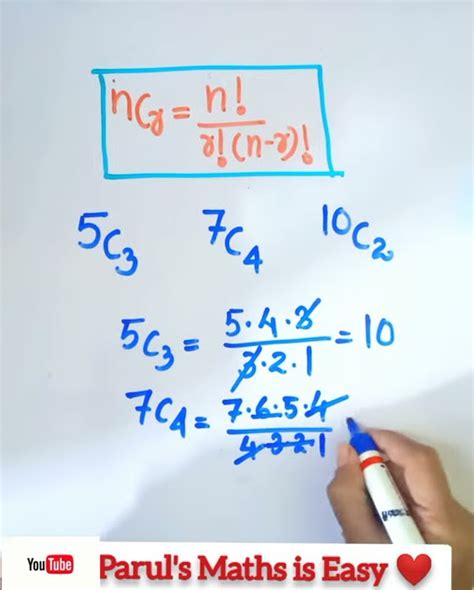 nCr = n!
r!(n-r)!
5C3 7C4 10C2
5C3 = 5·4·3 = 10
3·2·1
7C4 = 7·6·5·4
4 3 2 1
YouTube Parul's Maths is Easy ❤